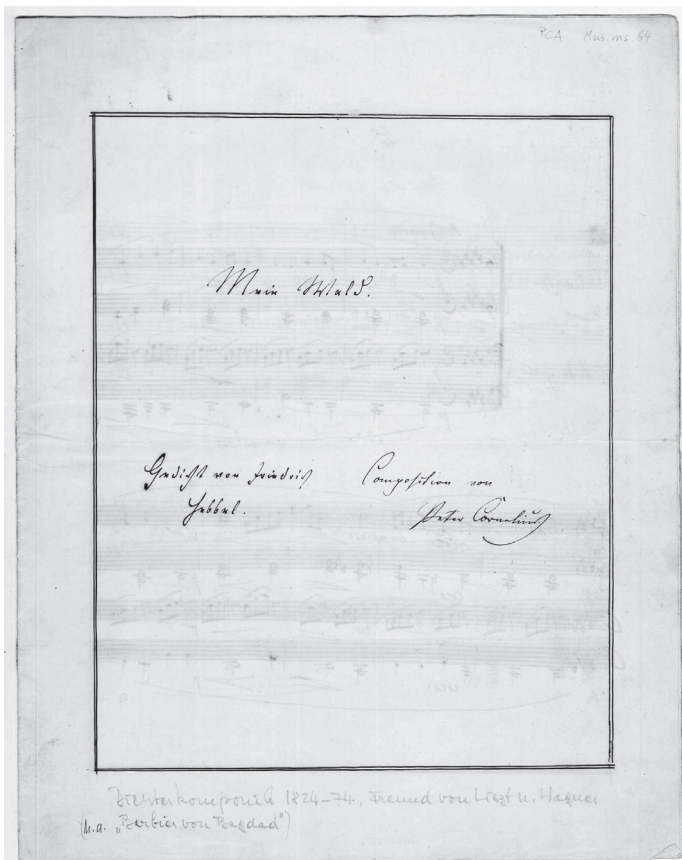 PCA Mus.ms. 64
Mein Wald.
Gedicht von Friedrich
Hebbel.
Composition von
Peter Cornelius
Dichterkomponist 1824-74, Freund von Liszt u. Wagner
(u.a. "Barbier von Bagdad")